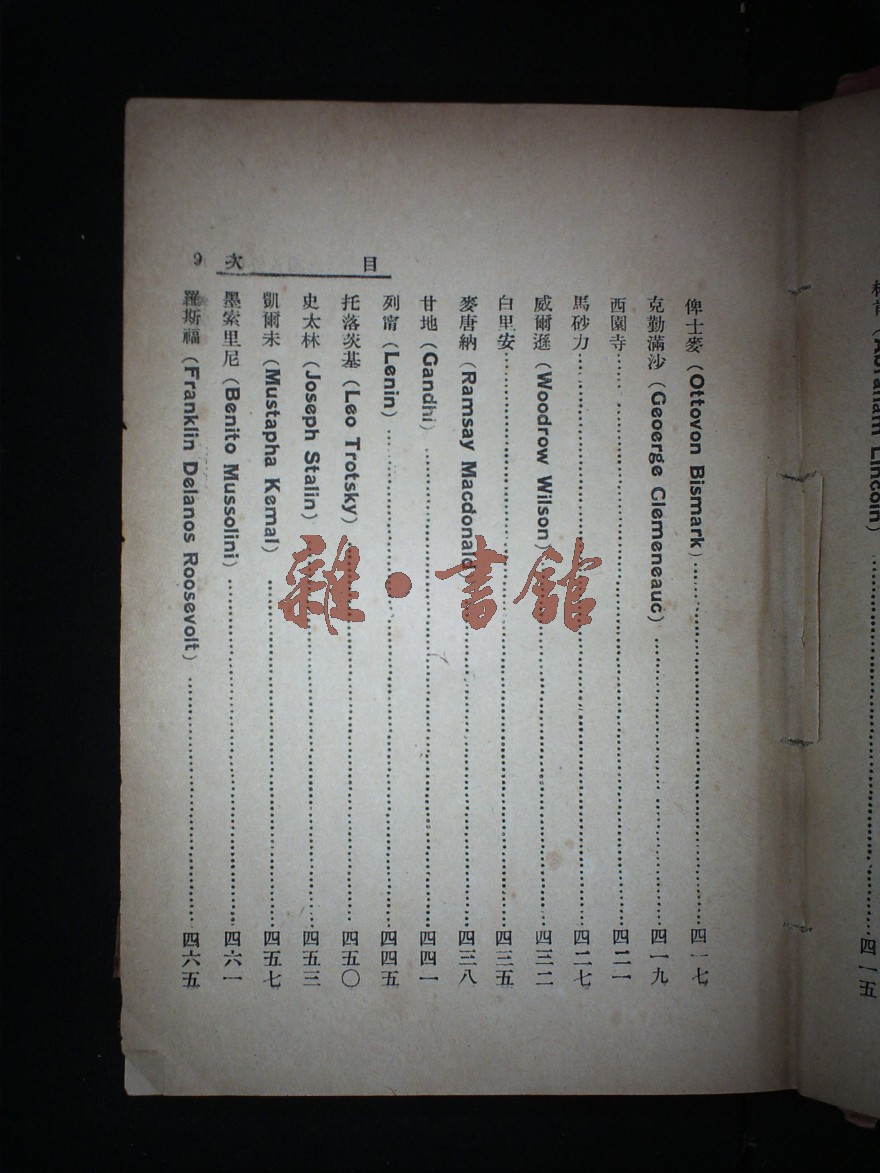 林肯 (Abraham Lincoln)……四一五
俾士麥 (Ottovon Bismark)……四一七
克勤滿沙 (Geoerge Clemeneauc)……四一九
西園寺……四二一
馬砂力……四二七
威爾遜 (Woodrow Wilson)……四三二
白里安……四三五
麥唐納 (Ramsay Macdonald)……四三八
甘地 (Gandhi)……四四一
列甯 (Lenin)……四四五
托落茨基 (Leo Trotsky)……四五〇
史太林 (Joseph Stalin)……四五三
凱爾末 (Mustapha Kemal)……四五七
墨索里尼 (Benito Mussolini)……四六一
羅斯福 (Franklin Delanos Roosevolt)……四六五
目次 9
雜·書館